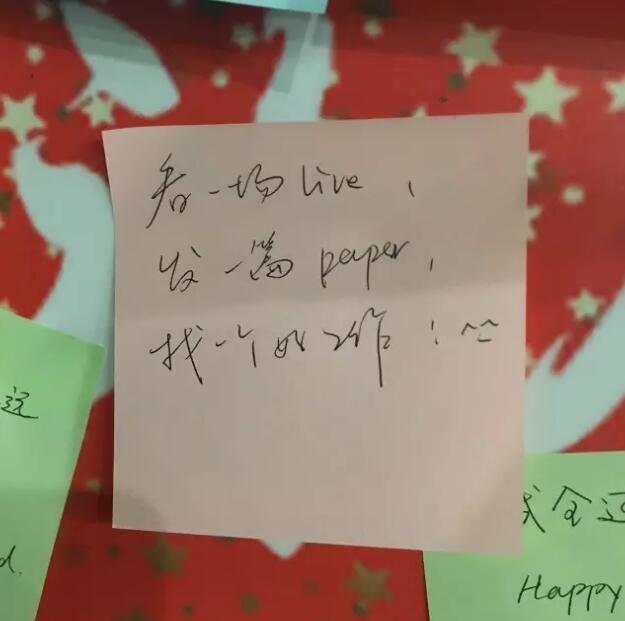 看一场live，
发一篇paper，
找一个好工作！^^
Happy